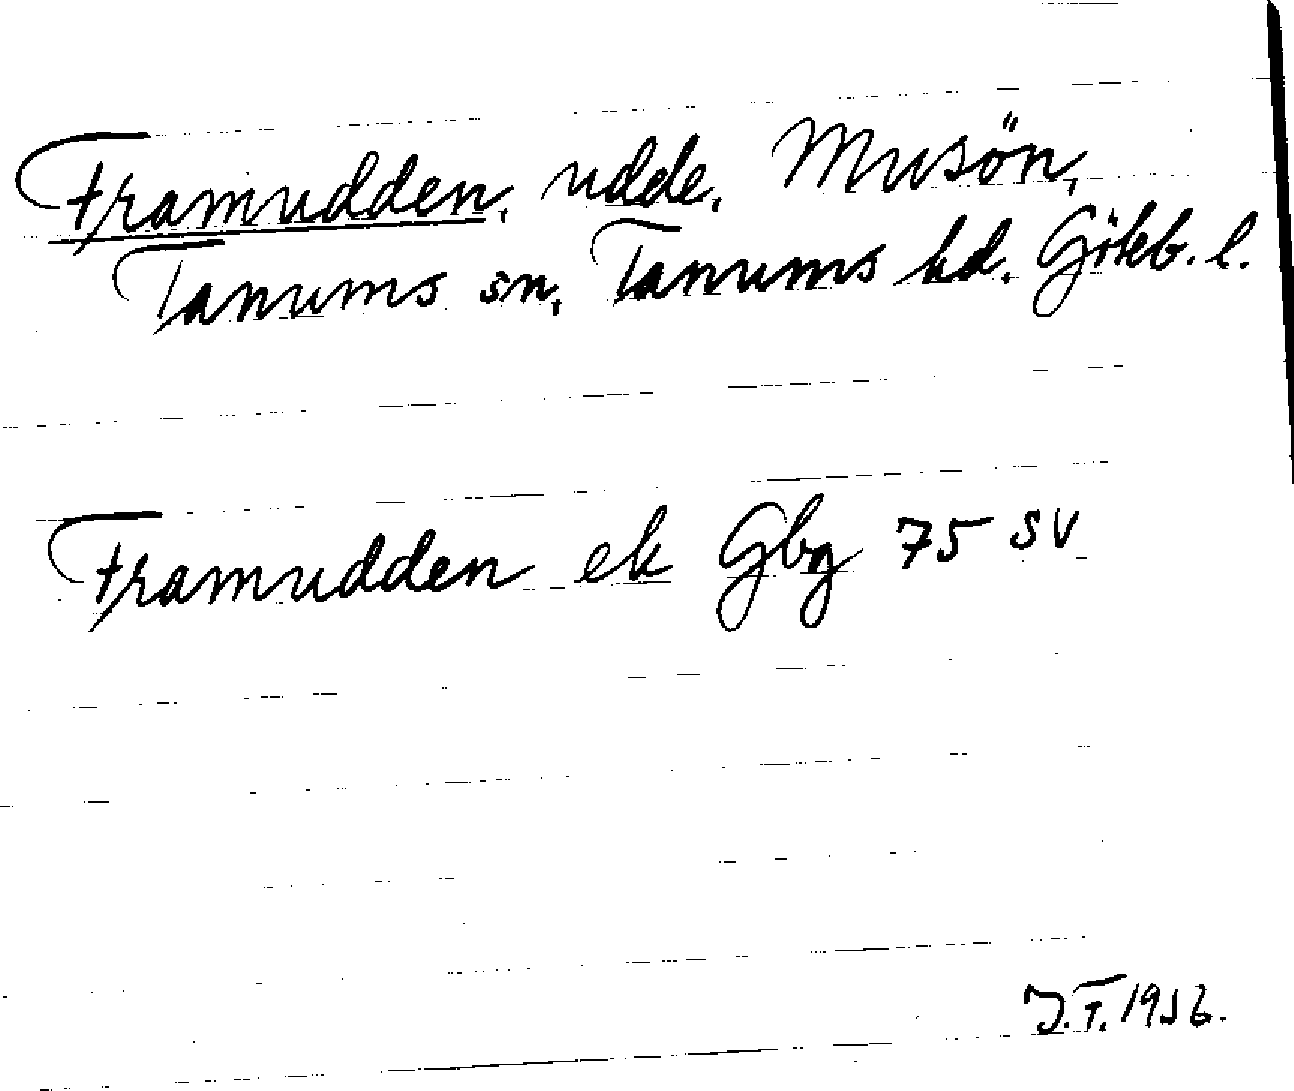 Framudden, udde, Musön,
Tanums sn, Tanums hd. Göteb. l.
Framudden ek Gbg 75 SV
J.T. 1936.